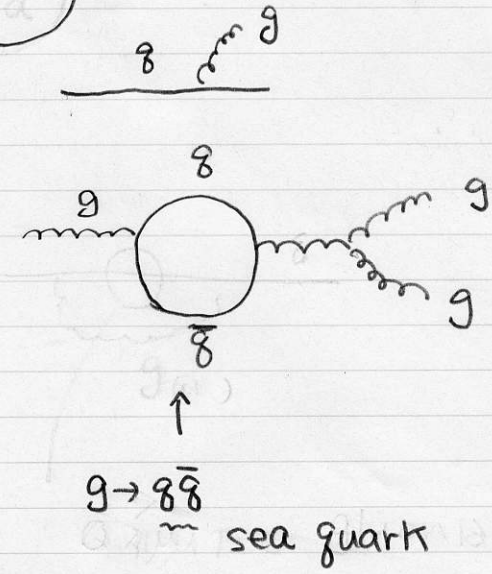 q g
q
g g
q̄ g
g → qq̄
sea quark